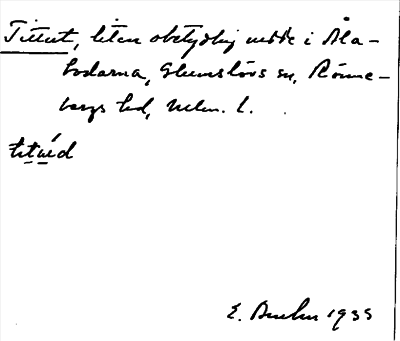 Tittut, liten obetydlig udde i Åla-
bodarna, Glumslövs sn, Rönne-
bergs hd, Mlm. l.
titɯ́d
E. Bruhn 1935